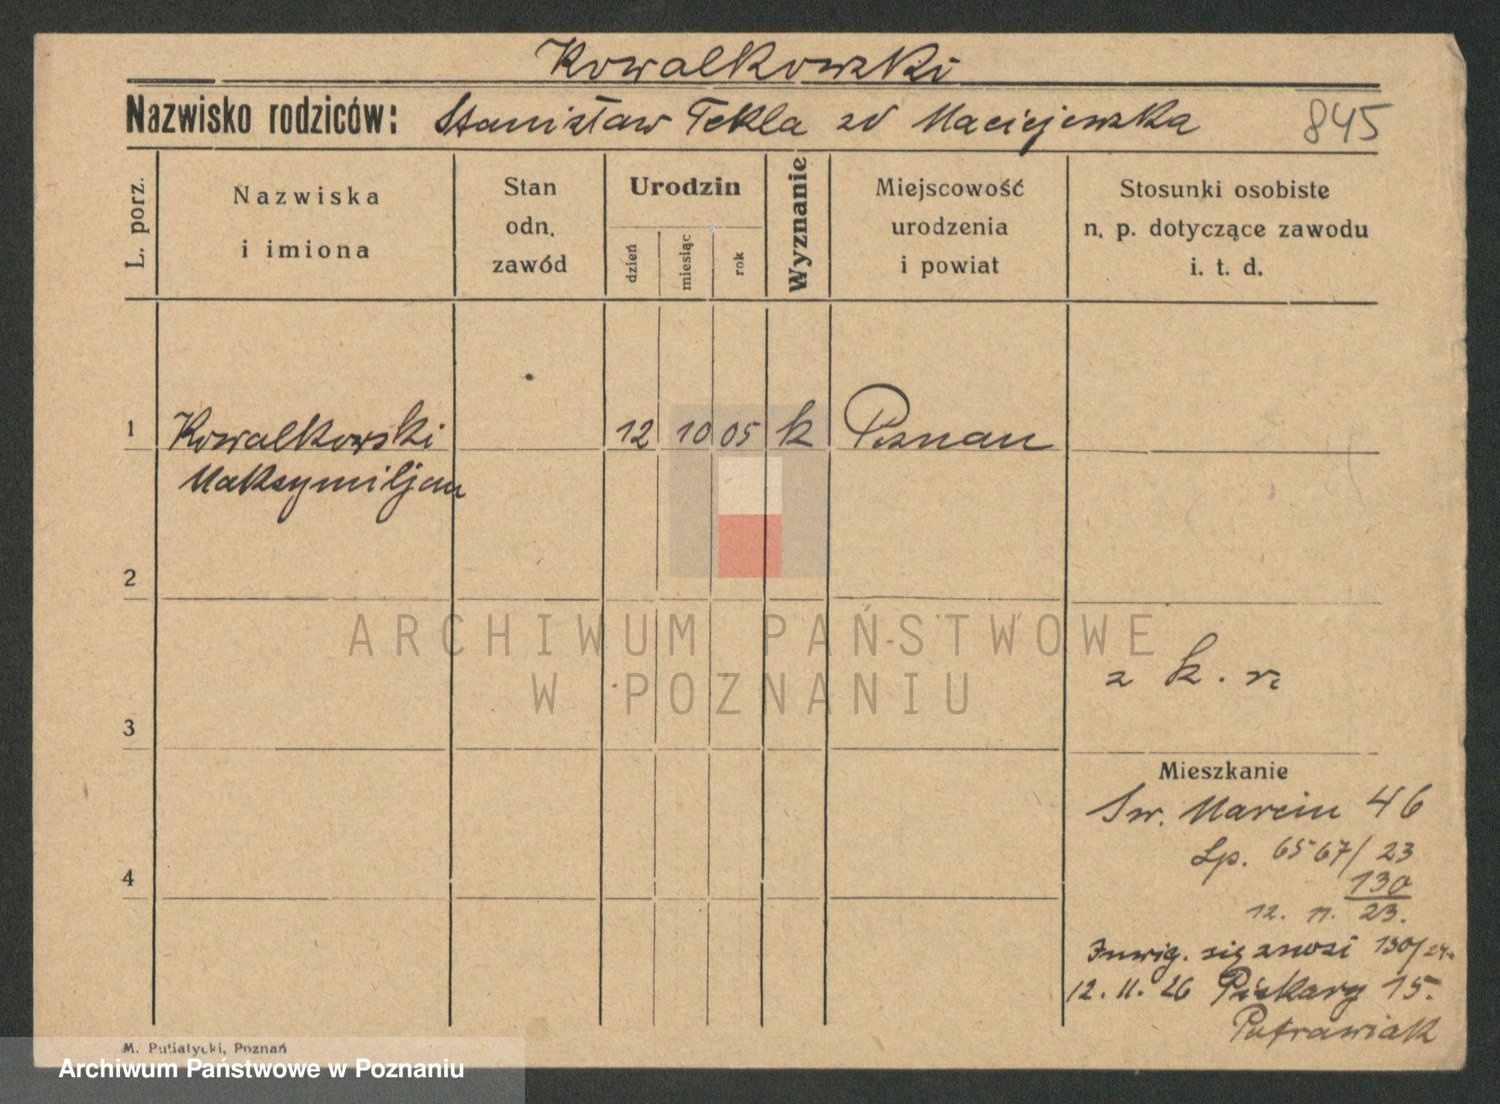 Kowalkowski
Nazwisko rodziców: Stanisław Tekla zd Maciejewska 845
L. porz.
Nazwiska
i imiona
Stan
odn.
zawód
Urodzin
dzień
miesiąc
rok
Wyznanie
Miejscowość
urodzenia
i powiat
Stosunki osobiste
n. p. dotyczące zawodu
i. t. d.
1 Kowalkowski 12 10 05 k Poznan
Maksymiljan
2
ARCHIWUM PAŃSTWOWE
W POZNANIU
z k.
3
Mieszkanie
Sw. Marcin 46
Lp. 6567/23
130
4
12. 11. 23.
się znosi 130/
12. 11. 26 Piekary 15.
M. Putiatycki, Poznań
Archiwum Państwowe w Poznaniu